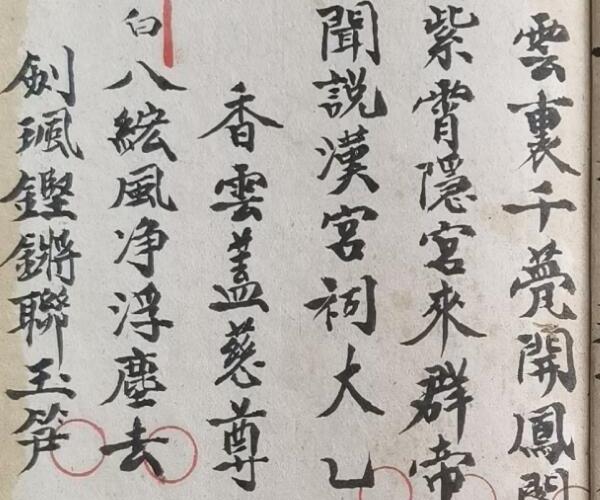 雲裏千甍開鳳閣
紫霄隱宮來群帝
聞説漢宮祠大乙
香雲蓋慈尊
白
八紘風净浮塵去
劍珮鏗鏘聯玉笋